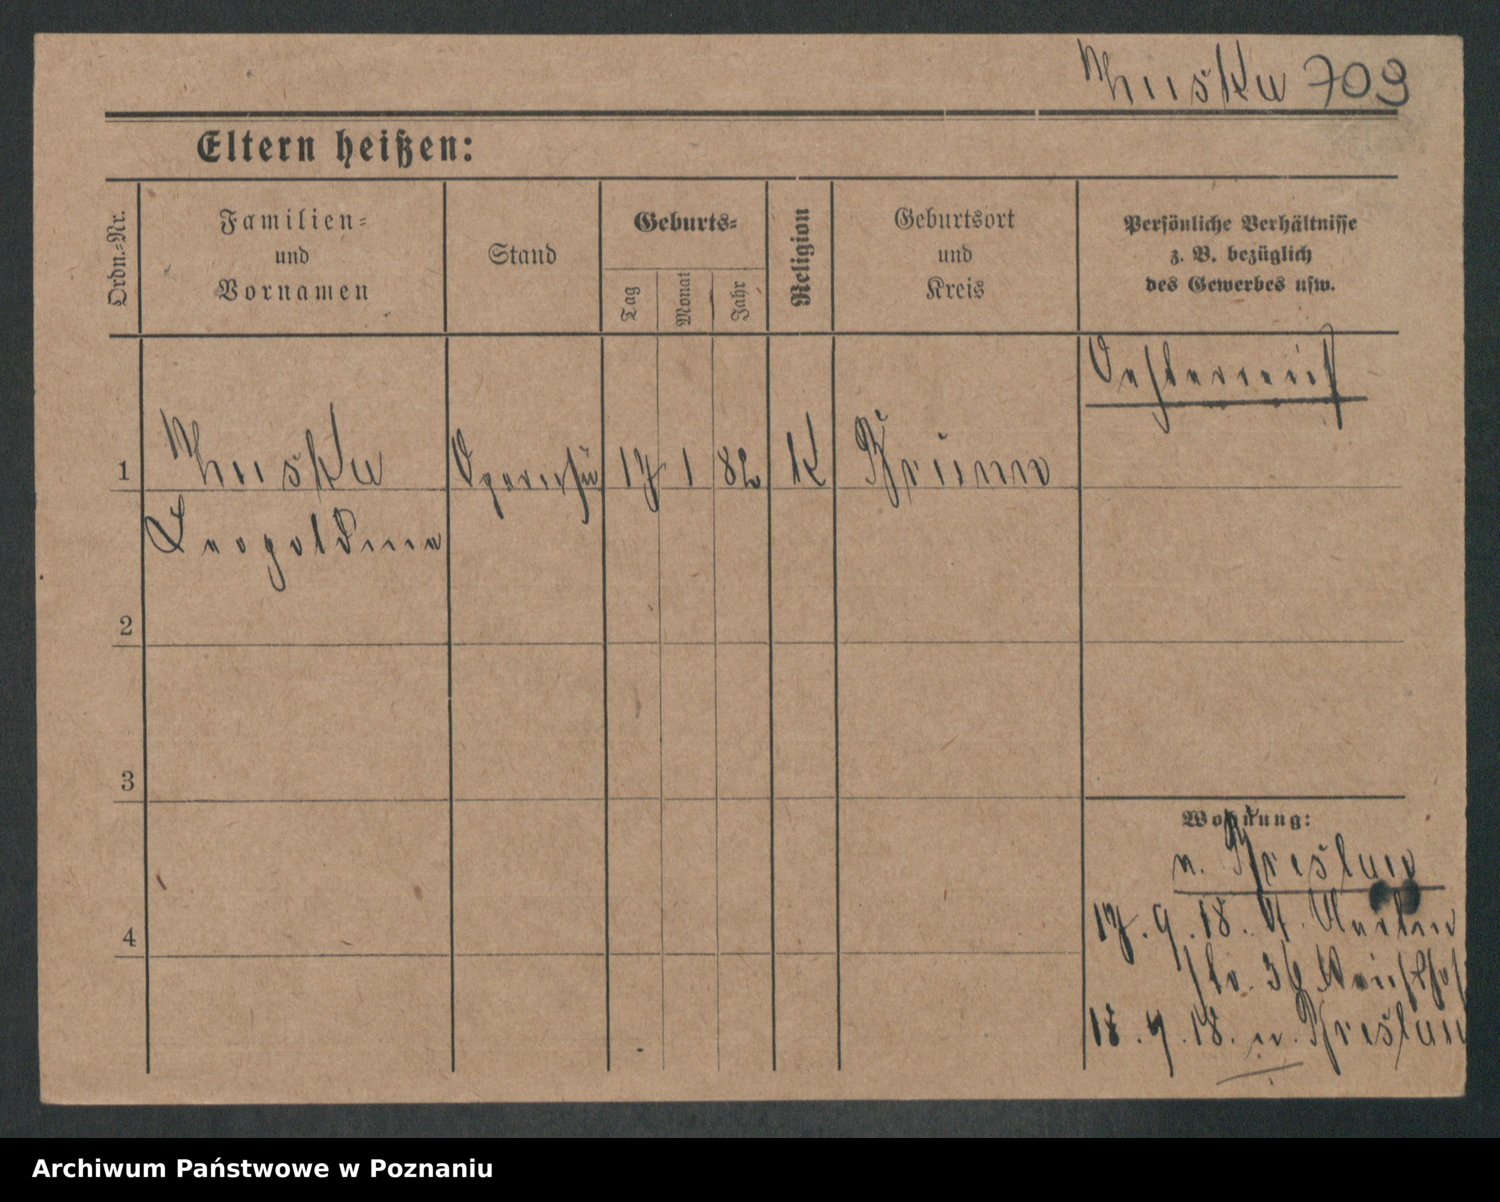 Huska 709
Eltern heißen:
Ordn.=Nr.
Familien=
und
Vornamen
Stand
Geburts=
Tag
Monat
Jahr
Religion
Geburtsort
und
Kreis
Persönliche Verhältnisse
z. B. bezüglich
des Gewerbes usw.
Oesterreich
1 Huska 17 1 82 K Brünn
Leopoldine
2
3
4
Wohnung:
n. Breslau
17. 9. 18. v. Berlin
18. 9. 18. n. Breslau
Archiwum Państwowe w Poznaniu